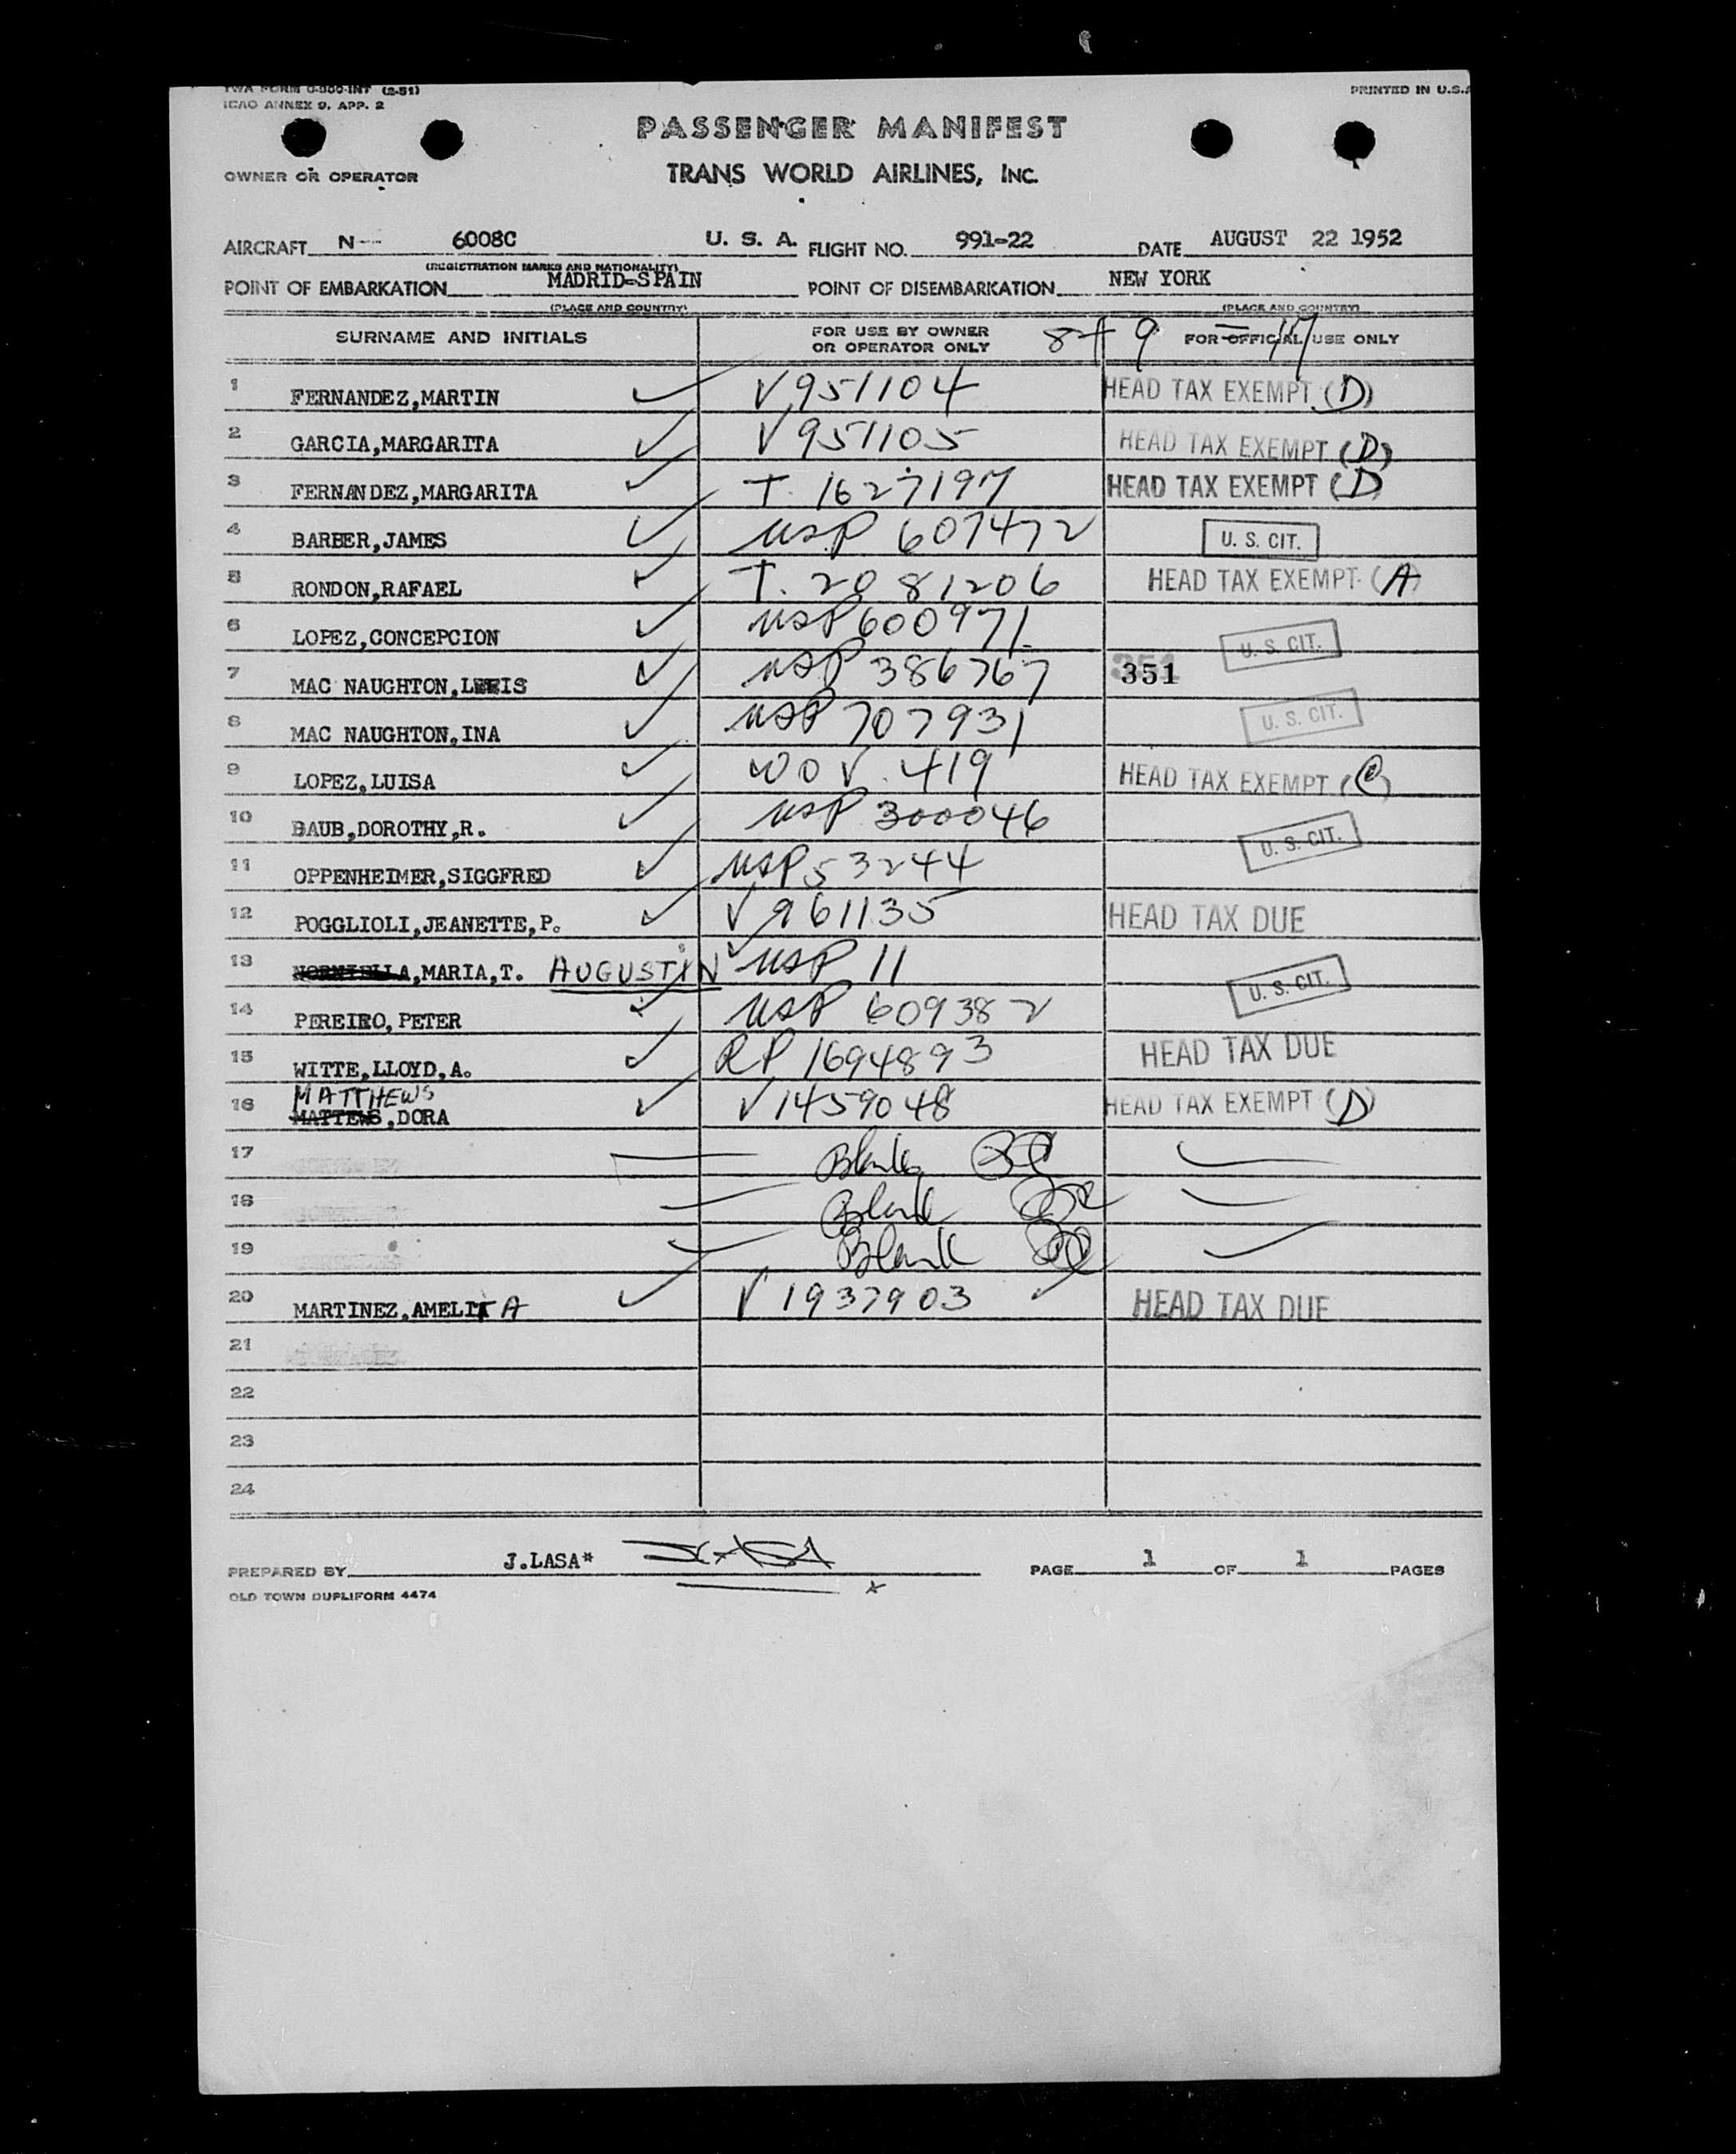 TWA FORM O-300-INT (2-51)
ICAO ANNEX 9, APP. 2
PRINTED IN U.S.A
PASSENGER MANIFEST
OWNER OR OPERATOR
TRANS WORLD AIRLINES, INC.
AIRCRAFT N-- 6008C U. S. A. FLIGHT NO. 991-22 DATE AUGUST 22 1952
(REGISTRATION MARKS AND NATIONALITY)
POINT OF EMBARKATION MADRID-SPAIN POINT OF DISEMBARKATION NEW YORK
(PLACE AND COUNTRY) (PLACE AND COUNTRY)
SURNAME AND INITIALS FOR USE BY OWNER OR OPERATOR ONLY 8+9 = 17 FOR OFFICIAL USE ONLY
1 FERNANDEZ,MARTIN V951104 HEAD TAX EXEMPT (D)
2 GARCIA,MARGARITA V951105 HEAD TAX EXEMPT (D)
3 FERNANDEZ,MARGARITA T. 1627197 HEAD TAX EXEMPT (D)
4 BARBER,JAMES USP 607472 U. S. CIT.
5 RONDON,RAFAEL T. 2081206 HEAD TAX EXEMPT (A)
6 LOPEZ,CONCEPCION USP 600971 U. S. CIT.
7 MAC NAUGHTON, USP 386767 351
8 MAC NAUGHTON,INA USP 707931 U. S. CIT.
9 LOPEZ,LUISA V. 419 HEAD TAX EXEMPT (C)
10 BAUB,DOROTHY,R. USP 300046 U. S. CIT.
11 OPPENHEIMER,SIGGFRED USP 53244
12 POGGLIOLI,JEANETTE,P. V 961135 HEAD TAX DUE
13 ,MARIA,T. AUGUSTIN USP 11 U. S. CIT.
14 PEREIRO,PETER USP 609382
15 WITTE,LLOYD,A. RP 1694893 HEAD TAX DUE
MATTHEWS
16 MATTEWS,DORA V 1459048 HEAD TAX EXEMPT (D)
17 Blank
18 Blank
19 Blank
20 MARTINEZ,AMELITA V 1937903 HEAD TAX DUE
21
22
23
24
PREPARED BY J.LASA* JLASA PAGE 1 OF 1 PAGES
OLD TOWN DUPLIFORM 4474